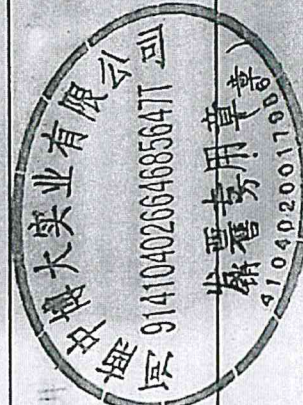 河南中博大实业有限公司
91410402664685647T
发票专用章
销售方:(章)
4104020017986